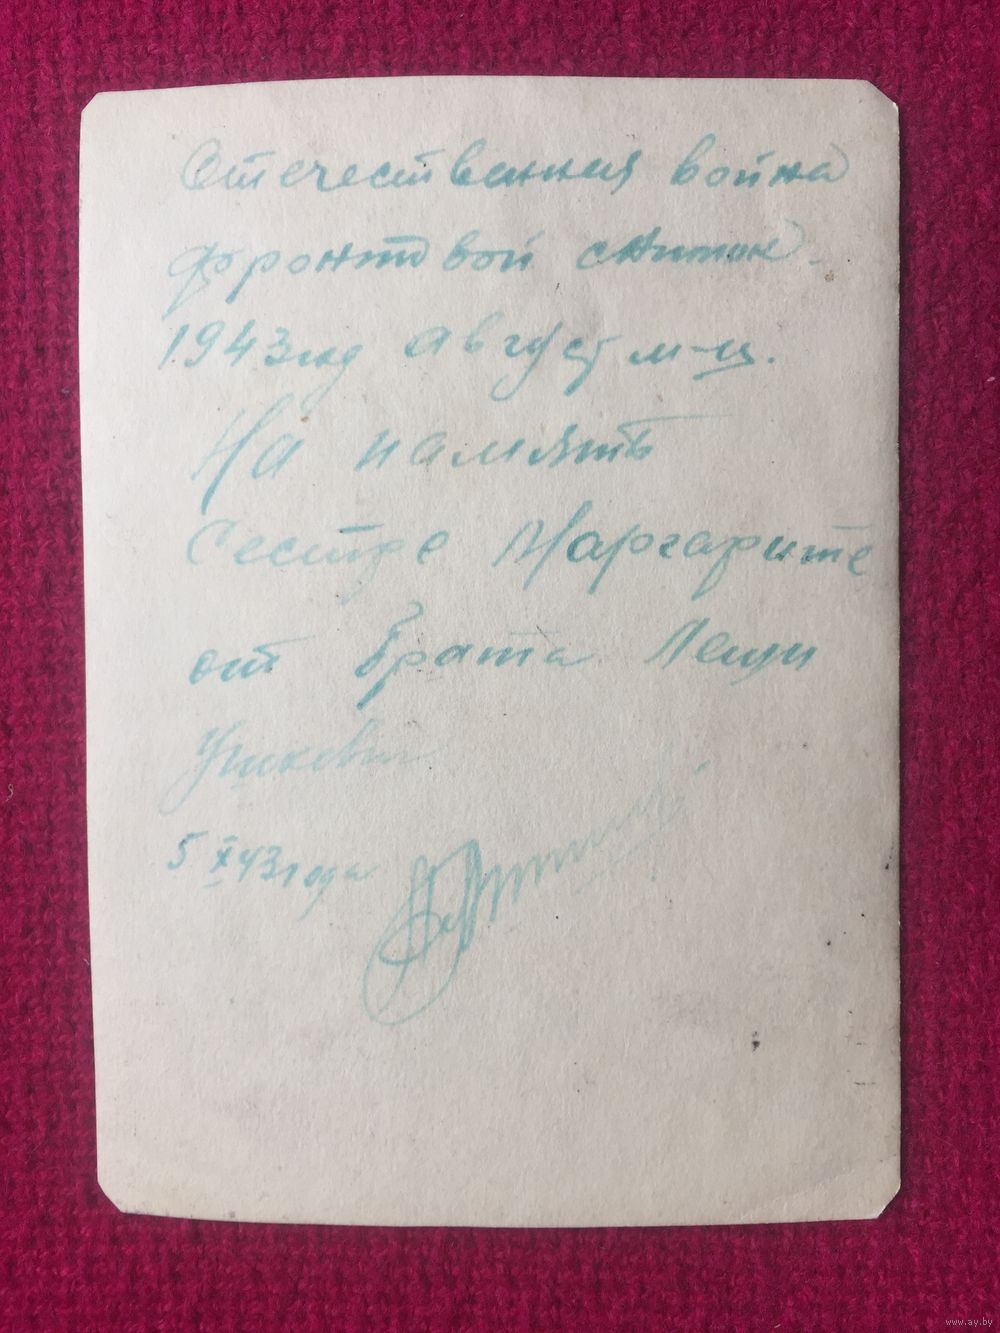 Отечественная война
фронтовой снимок.
1943 год август м-ц.
На память
Сестре Маргарите
от брата Леши
5 X 43 года
www.ay.by